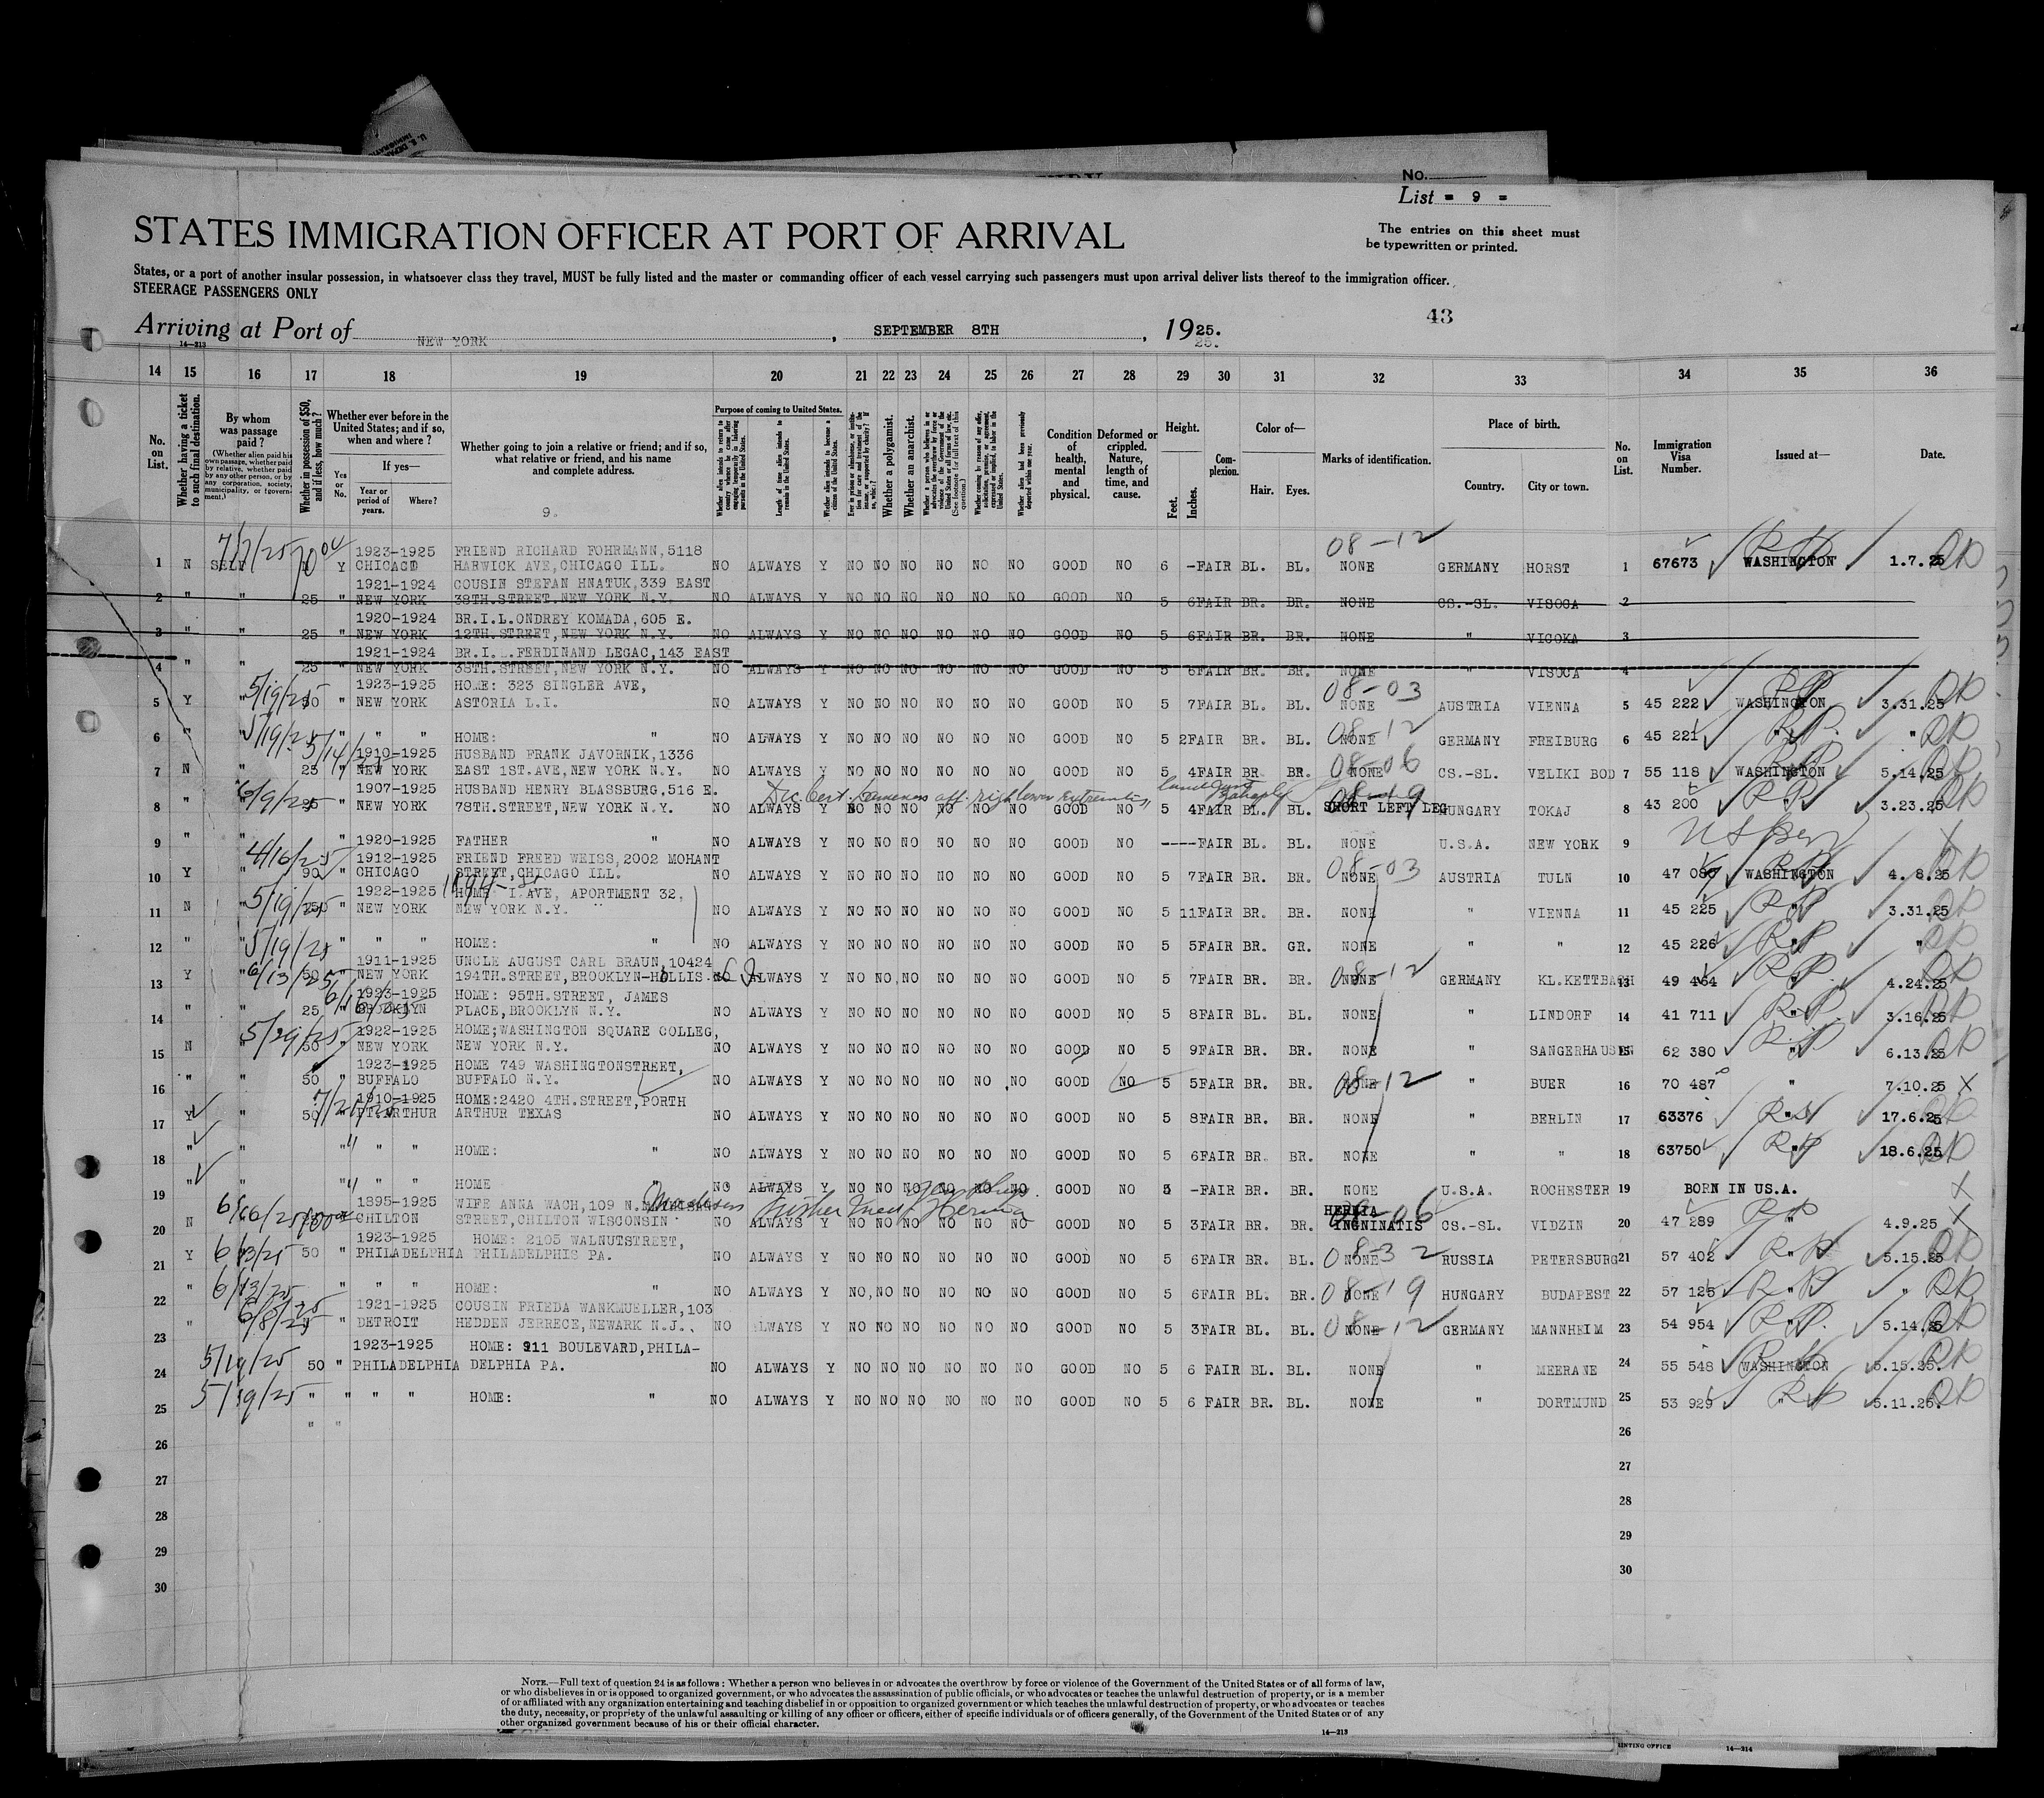 No.
List = 9 =
STATES IMMIGRATION OFFICER AT PORT OF ARRIVAL
The entries on this sheet must
be typewritten or printed.
States, or a port of another insular possession, in whatsoever class they travel, MUST be fully listed and the master or commanding officer of each vessel carrying such passengers must upon arrival deliver lists thereof to the immigration officer.
STEERAGE PASSENGERS ONLY
43
Arriving at Port of NEW YORK, SEPTEMBER 8TH, 1925.
14—213
14 15 16 17 18 19 20 21 22 23 24 25 26 27 28 29 30 31 32 33 34 35 36
No. on List.
Whether having a ticket to such final destination.
By whom was passage paid?
(Whether alien paid his own passage, whether paid by relative, whether paid by any other person, or by any corporation, society, municipality, or government.)
Whether in possession of $50, and if less, how much?
Whether ever before in the United States; and if so, when and where?
If yes—
Yes or No.
Year or period of years.
Where?
Whether going to join a relative or friend; and if so, what relative or friend, and his name and complete address.
9.
Purpose of coming to United States.
Length of time alien intends to remain in the United States.
Whether alien intends to become a citizen of the United States.
Whether a polygamist.
Whether an anarchist.
Condition of health, mental and physical.
Deformed or crippled. Nature, length of time, and cause.
Height.
Feet. Inches.
Complexion.
Color of—
Hair. Eyes.
Marks of identification.
Place of birth.
Country. City or town.
No. on List.
Immigration Visa Number.
Issued at—
Date.
08-12
1923-1925 FRIEND RICHARD FOHRMANN,5118
1 N SELF 7/7/25 Y CHICAGO HARWICK AVE,CHICAGO ILL. NO ALWAYS Y NO NO NO NO NO NO GOOD NO 6 - FAIR BL. BL. NONE GERMANY HORST 1 67673 WASHINGTON 1.7.25
1921-1924 COUSIN STEFAN HNATUK,339 EAST
2 " " 25 " NEW YORK 38TH.STREET.NEW YORK N.Y. NO ALWAYS Y NO NO NO NO NO NO GOOD NO 5 6 FAIR BR. BR. NONE CS.-SL. VISOCA 2
1920-1924 BR.I.L.ONDREY KOMADA,605 E.
3 " " 25 " NEW YORK 12TH.STREET,NEW YORK N.Y. NO ALWAYS Y NO NO NO NO NO NO GOOD NO 5 6 FAIR BR. BR. NONE " VICOKA 3
1921-1924 BR.I.L.FERDINAND LEGAC,143 EAST
4 " " 25 " NEW YORK 38TH.STREET,NEW YORK N.Y. NO ALWAYS Y NO NO NO NO NO NO GOOD NO 5 6 FAIR BR. BR. NONE " VISOCA 4
5/19/25 1923-1925 HOME: 323 SINGLER AVE, 08-03
5 Y " 50 " NEW YORK ASTORIA L.I. NO ALWAYS Y NO NO NO NO NO NO GOOD NO 5 7 FAIR BL. BL. NONE AUSTRIA VIENNA 5 45 222 WASHINGTON 3.31.25
5/19/25 08-12
6 " " " " " HOME: " NO ALWAYS Y NO NO NO NO NO NO GOOD NO 5 2 FAIR BR. BL. NONE GERMANY FREIBURG 6 45 221 " "
5/14/25 1910-1925 HUSBAND FRANK JAVORNIK,1336 08-06
7 N " 25 " NEW YORK EAST 1ST.AVE,NEW YORK N.Y. NO ALWAYS Y NO NO NO NO NO NO GOOD NO 5 4 FAIR BR. BR. NONE CS.-SL. VELIKI BOD 7 55 118 WASHINGTON 5.14.25
6/9/25 1907-1925 HUSBAND HENRY BLASSBURG,516 E. 08-19
8 " " 25 " NEW YORK 78TH.STREET,NEW YORK N.Y. NO ALWAYS Y NO NO NO NO NO NO GOOD NO 5 4 FAIR BL. BL. SHORT LEFT LEG HUNGARY TOKAJ 8 43 200 " 3.23.25
1920-1925 FATHER "
9 " " " NO ALWAYS Y NO NO NO NO NO NO GOOD NO ---- FAIR BL. BL. NONE U.S.A. NEW YORK 9
4/16/25 1912-1925 FRIEND FREED WEISS,2002 MOHANT 08-03
10 Y " 90 " CHICAGO STREET,CHICAGO ILL. NO ALWAYS Y NO NO NO NO NO NO GOOD NO 5 7 FAIR BR. BR. NONE AUSTRIA TULN 10 47 086 WASHINGTON 4. 8.25
5/19/25 1922-1925 HOME I.AVE, APORTMENT 32,
11 N " " NEW YORK NEW YORK N.Y. NO ALWAYS Y NO NO NO NO NO NO GOOD NO 5 11 FAIR BR. BR. NONE " VIENNA 11 45 225 " 3.31.25
5/19/25
12 " " " " " HOME: " NO ALWAYS Y NO NO NO NO NO NO GOOD NO 5 5 FAIR BR. GR. NONE " " 12 45 226 " "
6/13/25 1911-1925 UNCLE AUGUST CARL BRAUN,10424 08-12
13 Y " 50 " NEW YORK 194TH.STREET,BROOKLYN-HOLLIS. ALWAYS Y NO NO NO NO NO NO GOOD NO 5 7 FAIR BR. BR. NONE GERMANY KL.KETTBACH 13 49 464 " 4.24.25
6/16/25 1923-1925 HOME: 95TH.STREET, JAMES
14 " " 25 " BROOKLYN PLACE,BROOKLYN N.Y. NO ALWAYS Y NO NO NO NO NO NO GOOD NO 5 8 FAIR BL. BL. NONE " LINDORF 14 41 711 " 3.16.25
5/29/25 1922-1925 HOME;WASHINGTON SQUARE COLLEG,
15 N " 50 " NEW YORK NEW YORK N.Y. NO ALWAYS Y NO NO NO NO NO NO GOOD NO 5 9 FAIR BR. BR. NONE " SANGERHAUSEN 15 62 380 " 6.13.25
1923-1925 HOME 749 WASHINGTONSTREET, 08-12
16 " " 50 " BUFFALO BUFFALO N.Y. NO ALWAYS Y NO NO NO NO NO NO GOOD NO 5 5 FAIR BR. BR. NONE " BUER 16 70 487 " 7.10.25
1910-1925 HOME:2420 4TH.STREET,PORTH
17 Y " 50 PT.ARTHUR ARTHUR TEXAS NO ALWAYS Y NO NO NO NO NO NO GOOD NO 5 8 FAIR BR. BR. NONE " BERLIN 17 63376 " 17.6.25
18 " " " " " HOME: " NO ALWAYS Y NO NO NO NO NO NO GOOD NO 5 6 FAIR BR. BR. NONE " " 18 63750 " 18.6.25
19 " " " " HOME " NO ALWAYS Y NO NO NO NO NO NO GOOD NO 5 - FAIR BR. BR. NONE U.S.A. ROCHESTER 19 BORN IN U.S.A.
1895-1925 WIFE ANNA WACH,109 N. Madison HERNIA 08-06
20 N " CHILTON STREET,CHILTON WISCONSIN NO ALWAYS Y NO NO NO NO NO NO GOOD NO 5 3 FAIR BR. BR. INGNINATIS CS.-SL. VIDZIN 20 47 289 " 4.9.25
1923-1925 HOME: 2105 WALNUTSTREET, 08-32
21 Y 6/13/25 50 " PHILADELPHIA PHILADELPHIS PA. NO ALWAYS Y NO NO NO NO NO NO GOOD NO 5 6 FAIR BR. BL. NONE RUSSIA PETERSBURG 21 57 402 " 5.15.25
22 " 6/13/25 " " " HOME: " NO ALWAYS Y NO, NO NO NO NO NO GOOD NO 5 6 FAIR BL. BR. NONE 08-19 HUNGARY BUDAPEST 22 57 125 " "
6/8/25 1921-1925 COUSIN FRIEDA WANKMUELLER,103
23 " " DETROIT HEDDEN JERRECE,NEWARK N.J., NO ALWAYS Y NO NO NO NO NO NO GOOD NO 5 3 FAIR BL. BL. NONE 08-12 GERMANY MANNHEIM 23 54 954 " 5.14.25
1923-1925 HOME: 911 BOULEVARD,PHILA-
24 5/19/25 50 " PHILADELPHIA DELPHIA PA. NO ALWAYS Y NO NO NO NO NO NO GOOD NO 5 6 FAIR BL. BL. NONE " MEERANE 24 55 548 WASHINGTON 5.15.25.
25 5/19/25 " " " " HOME: " NO ALWAYS Y NO NO NO NO NO NO GOOD NO 5 6 FAIR BR. BL. NONE " DORTMUND 25 53 929 " 5.11.25.
26 26
27 27
28 28
29 29
30 30
NOTE.—Full text of question 24 is as follows: Whether a person who believes in or advocates the overthrow by force or violence of the Government of the United States or of all forms of law,
or who disbelieves in or is opposed to organized government, or who advocates the assassination of public officials, or who advocates or teaches the unlawful destruction of property, or is a member
of or affiliated with any organization entertaining and teaching disbelief in or opposition to organized government or which teaches the unlawful destruction of property, or who advocates or teaches
the duty, necessity, or propriety of the unlawful assaulting or killing of any officer or officers, either of specific individuals or of officers generally, of the Government of the United States or of any
other organized government because of his or their official character.
14—213
14—214